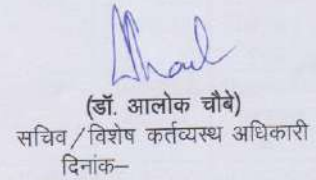 (डॉ. आलोक चौबे)
सचिव/विशेष कर्तव्यस्थ अधिकारी
दिनांक–